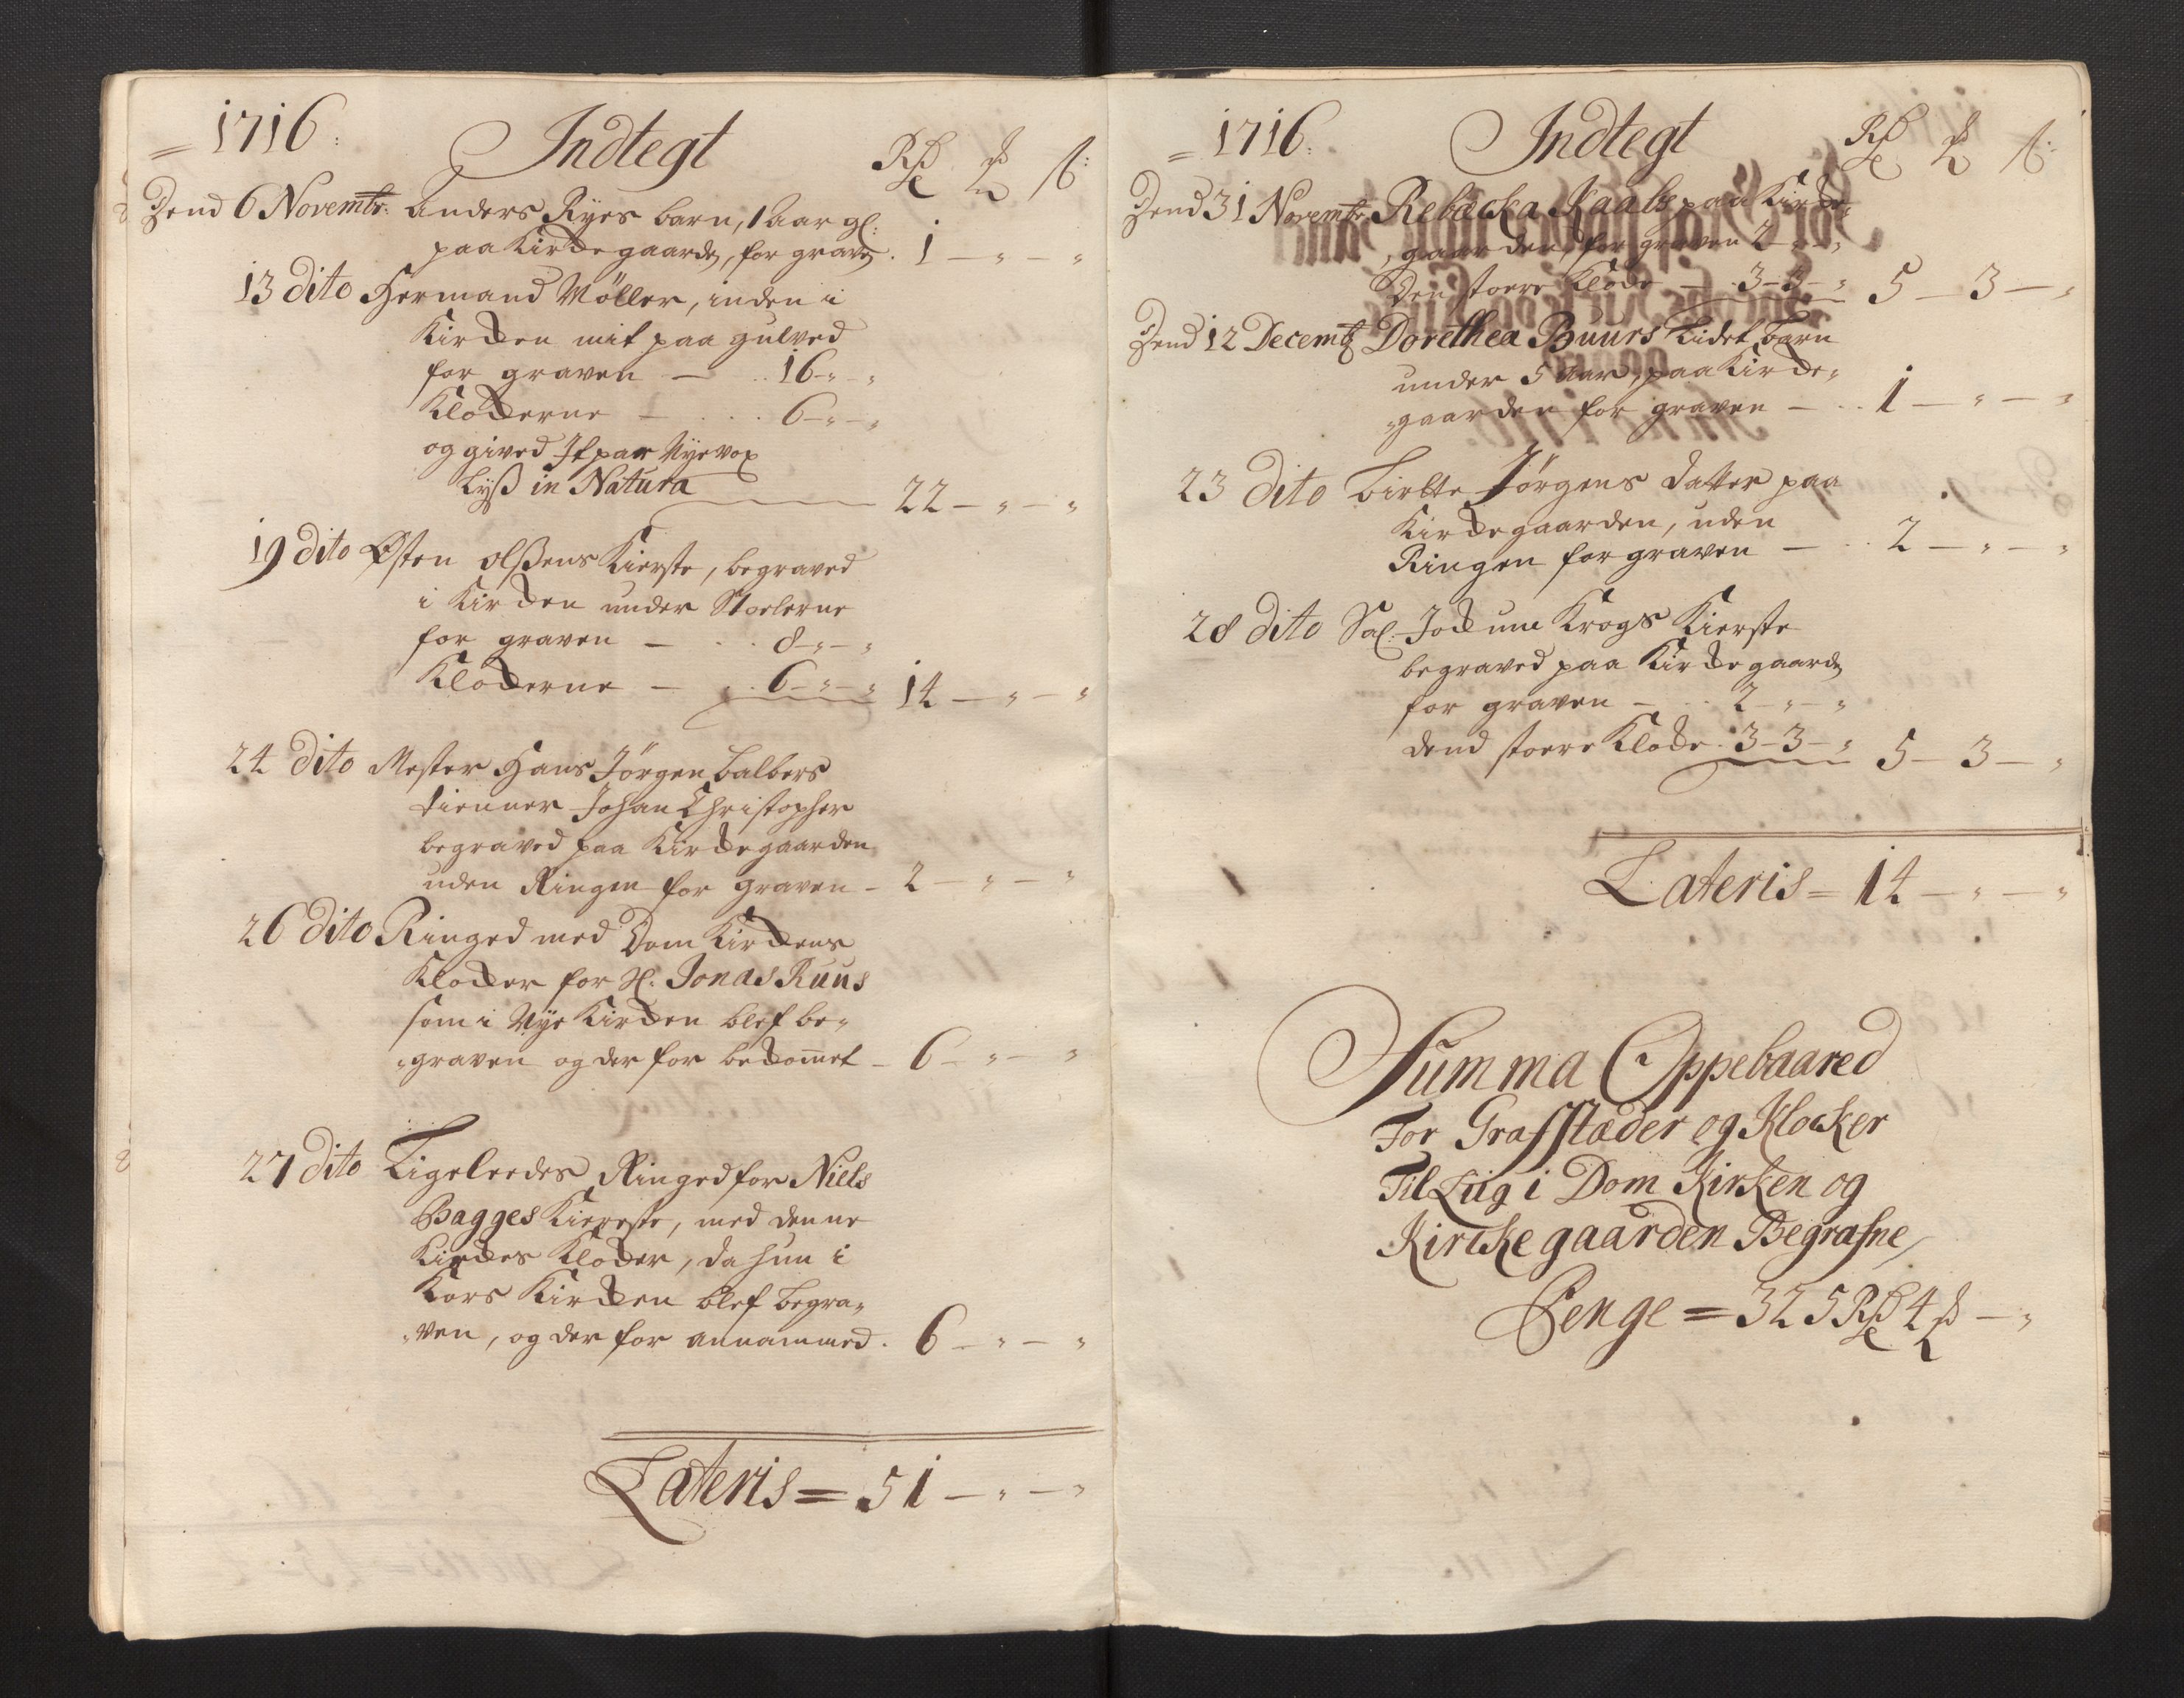 1716: Indtegt Rd ß:
Dend 6 Novembr: Anders Ryes barn, 1 Aar gl:
paa Kirckegaarden, for graven . 1 — " — "
13 dito Hermand Möller, inden i
Kircken mit paa gulved
for graven — .. 16 - " - "
Klockerne — . . . 6 - " - "
og gived It par Nye vox
Lyß in Natura 22 — " — "
19 dito Østen Olßens Kierste, begraved
i Kircken under Stoelerne
for graven — . . 8 - " - "
Klockerne — . . 6 - " - " 14 — " — "
24 dito Mester Hans Jörgen Balbers
tienner Johan Christopher
begraved paa Kirckegaarden
uden Ringen for graven - 2 — " — "
26 dito Ringed med Dom Kirckens
Klocker for H: Jonas Ruus
som i Nye Kircken blef be"
"graven og der for bekommet — 6 — " — "
27 dito Ligeleedes Ringed for Niels
Bagges Kiereste, med denne
Kirckes Klocker, da hun i
Kors Kircken blef begra"
"ven, og der for annammed . 6 — " — "
Lateris = 51 — " — "
1716: Indtegt Rd ß:
Dend 31 Novembr Rebecka Kaals paa Kircke"
"gaarden, for graven 2 - " - "
Den stoere Klocke — . 3 - 3 - " 5 — 3 — "
Dend 12 Decembr Dorethea Buurs Lidet barn
under 5 Aar, paa Kircke"
"gaarden for graven — . . 1 — " — "
23 dito Birtte Jörgens datter paa
Kirckegaarden, uden
Ringen for graven — . . 2 — " — "
28 dito Sal: Jockum Krogs Kierste
begraved paa Kirckegaarden
for graven — . . 2 - " - "
dend stoere Klocke . 3 - 3 - " 5 — 3 — "
Lateris = 14 — " — "
Summa Oppebaared
For Grafstæder og Klocker
Til Liig i Dom Kirken og
Kircke gaarden Begrafne,
Penge = 325 Rd 4 — "